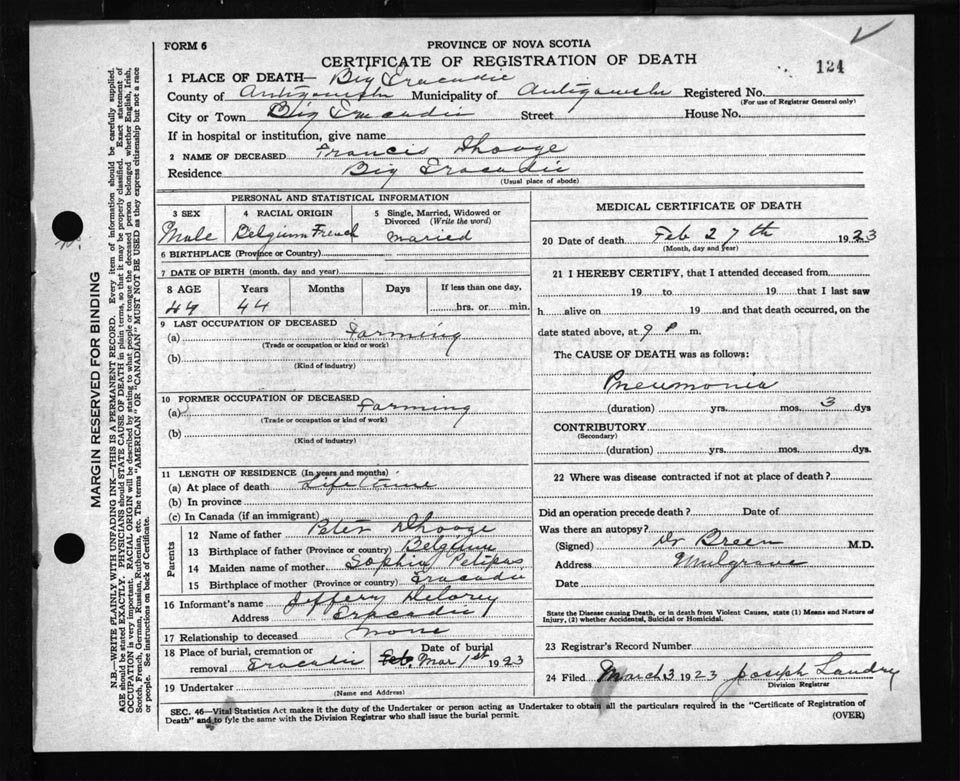 FORM 6
PROVINCE OF NOVA SCOTIA
CERTIFICATE OF REGISTRATION OF DEATH
124
1 PLACE OF DEATH— Big Tracadie
County of Antigonish Municipality of Antigonish Registered No.
(For use of Registrar General only)
City or Town Big Tracadie Street House No.
If in hospital or institution, give name
2 NAME OF DECEASED Francis Dhooge
Residence Big Tracadie
(Usual place of abode)
PERSONAL AND STATISTICAL INFORMATION
3 SEX 4 RACIAL ORIGIN 5 Single, Married, Widowed or
Divorced (Write the word)
Male Belgium French Maried
6 BIRTHPLACE (Province or Country)
7 DATE OF BIRTH (month, day and year)
8 AGE Years Months Days If less than one day,
44 44 hrs. or min.
9 LAST OCCUPATION OF DECEASED
(a) Farming
(Trade or occupation or kind or work)
(b)
(Kind of industry)
10 FORMER OCCUPATION OF DECEASED
(a) Farming
(Trade or occupation or kind of work)
(b)
(Kind of industry)
11 LENGTH OF RESIDENCE (In years and months)
(a) At place of death Life time
(b) In province
(c) In Canada (if an immigrant)
Parents
12 Name of father Peter Dhooge
13 Birthplace of father (Province or country) Belgium
14 Maiden name of mother Sophia Petipas
15 Birthplace of mother (Province or country) Tracadie
16 Informant's name Jeffery Delorey
Address Tracadie
17 Relationship to deceased none
18 Place of burial, cremation or Date of burial
removal Tracadie Feb Mar 1st 1923
19 Undertaker
(Name and Address)
MEDICAL CERTIFICATE OF DEATH
20 Date of death Feb 27th 1923
(Month, day and year)
21 I HEREBY CERTIFY, that I attended deceased from
19 to 19 that I last saw
h alive on 19 and that death occurred, on the
date stated above, at 9 P m.
The CAUSE OF DEATH was as follows:
Pneumonia
(duration) yrs. mos. 3 dys
CONTRIBUTORY
(Secondary)
(duration) yrs. mos. dys.
22 Where was disease contracted if not at place of death?
Did an operation precede death? Date of
Was there an autopsy?
(Signed) Dr Breen M.D.
Address Mulgrave
Date
State the Disease causing Death, or in death from Violent Causes, state (1) Means and Nature of
Injury, (2) whether Accidental, Suicidal or Homicidal.
23 Registrar's Record Number
24 Filed March 3 1923 Joseph Landry
Division Registrar
SEC. 46—Vital Statistics Act makes it the duty of the Undertaker or person acting as Undertaker to obtain all the particulars required in the "Certificate of Registration of
Death" and to fyle the same with the Division Registrar who shall issue the burial permit.
(OVER)
MARGIN RESERVED FOR BINDING
N.B.—WRITE PLAINLY WITH UNFADING INK—THIS IS A PERMANENT RECORD. Every item of information should be carefully supplied.
AGE should be stated EXACTLY. PHYSICIANS should STATE CAUSE OF DEATH in plain terms, so that it may be properly classified. Exact statement of
OCCUPATION is very important. RACIAL ORIGIN will be described by stating to what people or tongue the deceased person belonged whether English, Irish,
Scotch, French, German, Russian, Ruthenian, etc. The terms "AMERICAN" OR "CANADIAN" MUST NOT BE USED as they express citizenship but not a race
or people. See instructions on back of Certificate.